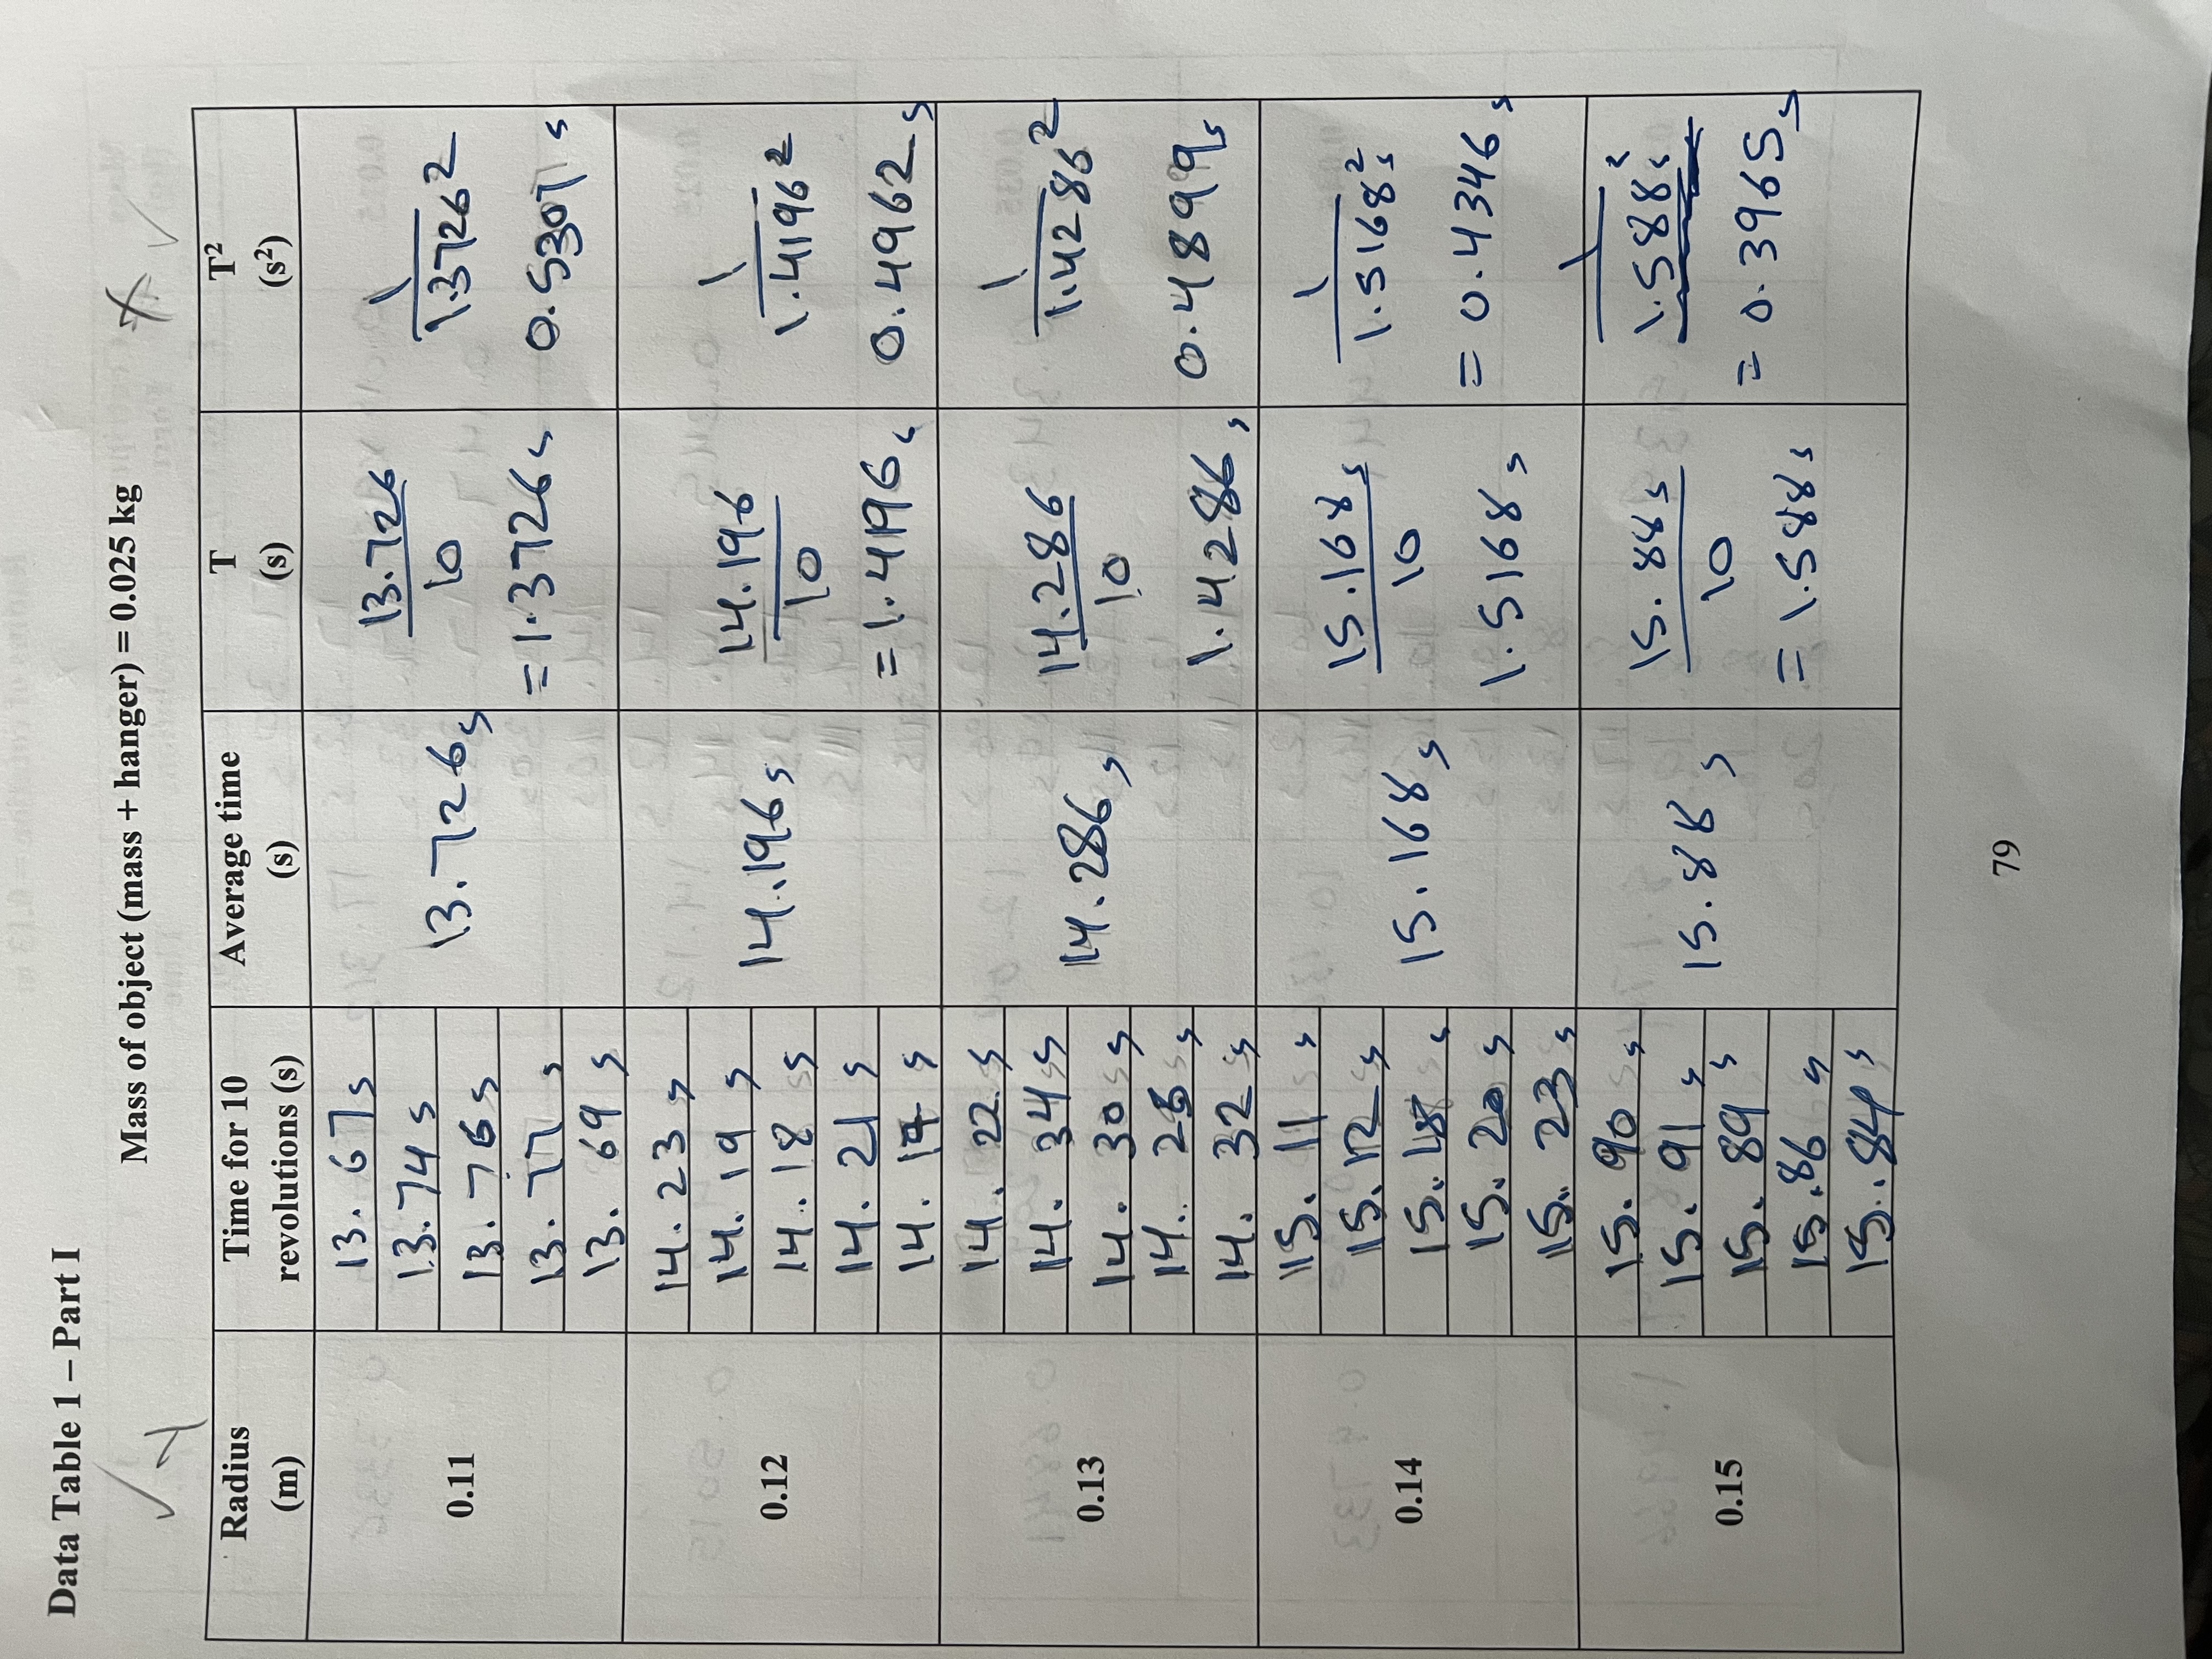 Data Table 1 – Part I
Mass of object (mass + hanger) = 0.025 kg
Radius (m)
Time for 10 revolutions (s)
Average time (s)
T (s)
T² (s²)
0.11
13.67 s
13.74 s
13.76 s
13.77 s
13.69 s
13.726 s
13.726
10
= 1.3726 s
1
1.3726²
0.5307 s
0.12
14.23 s
14.19 s
14.18 s
14.21 s
14.17 s
14.196 s
14.196
10
= 1.4196 s
1
1.4196²
0.4962 s
0.13
14.22 s
14.34 s
14.30 s
14.25 s
14.32 s
14.286 s
14.286
10
1.4286 s
1
1.4286²
0.4899 s
0.14
15.11 s
15.12 s
15.18 s
15.20 s
15.23 s
15.168 s
15.168 s
10
1.5168 s
1
1.5168 s²
= 0.4346 s
0.15
15.90 s
15.91 s
15.89 s
15.86 s
15.84 s
15.88 s
15.88 s
10
= 1.588 s
1
1.588 s²
= 0.3965 s
79